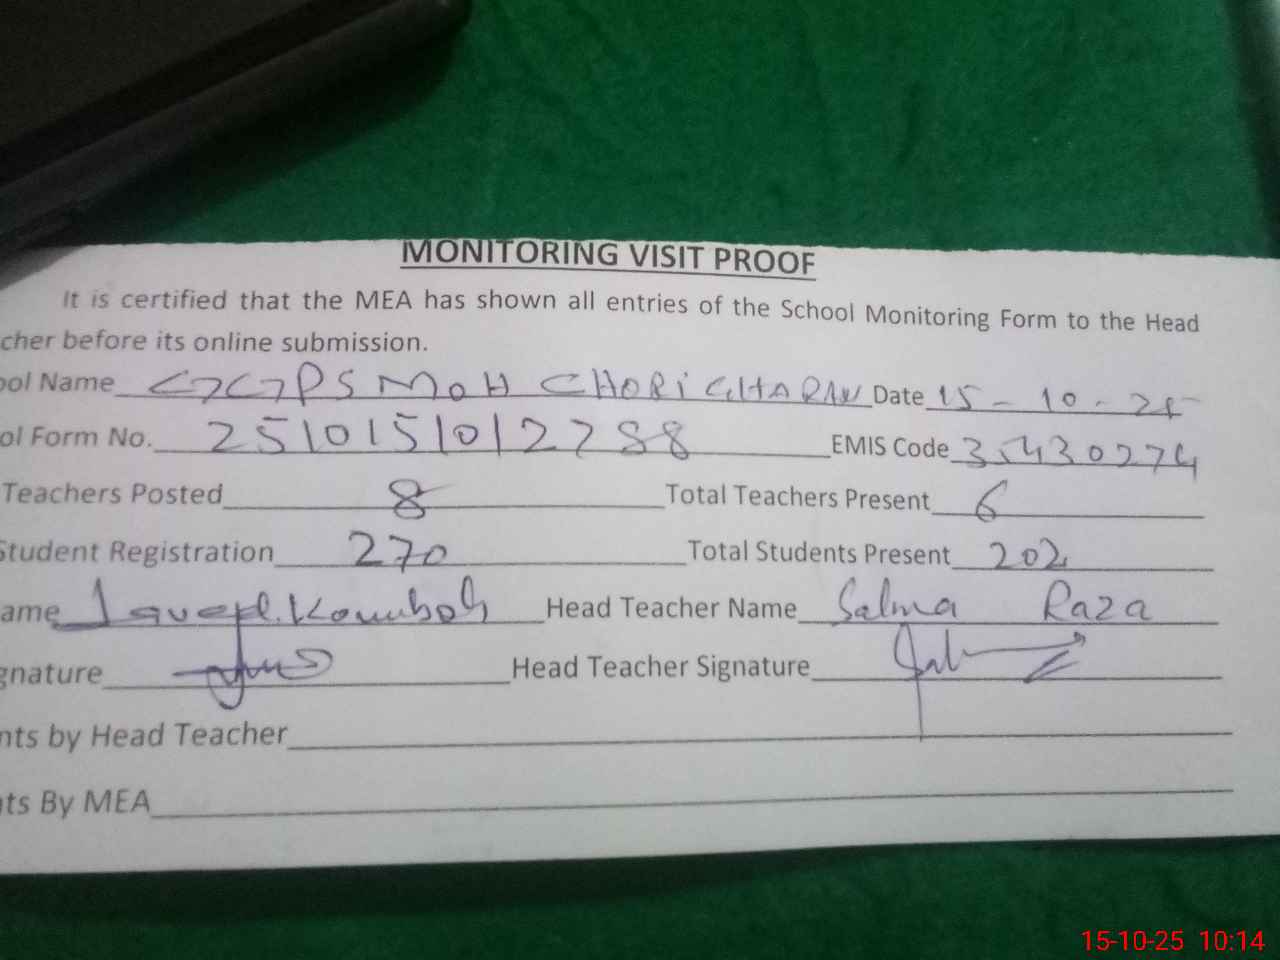 MONITORING VISIT PROOF
It is certified that the MEA has shown all entries of the School Monitoring Form to the Head
cher before its online submission.
ool Name GGPS MOH CHORIGHARAN Date 15-10-25
ol Form No. 2510151012288 EMIS Code 35430274
Teachers Posted 8 Total Teachers Present 6
Student Registration 270 Total Students Present 202
ame Kamboh Head Teacher Name Salma Raza
gnature Head Teacher Signature
nts by Head Teacher
nts By MEA
15-10-25 10:14